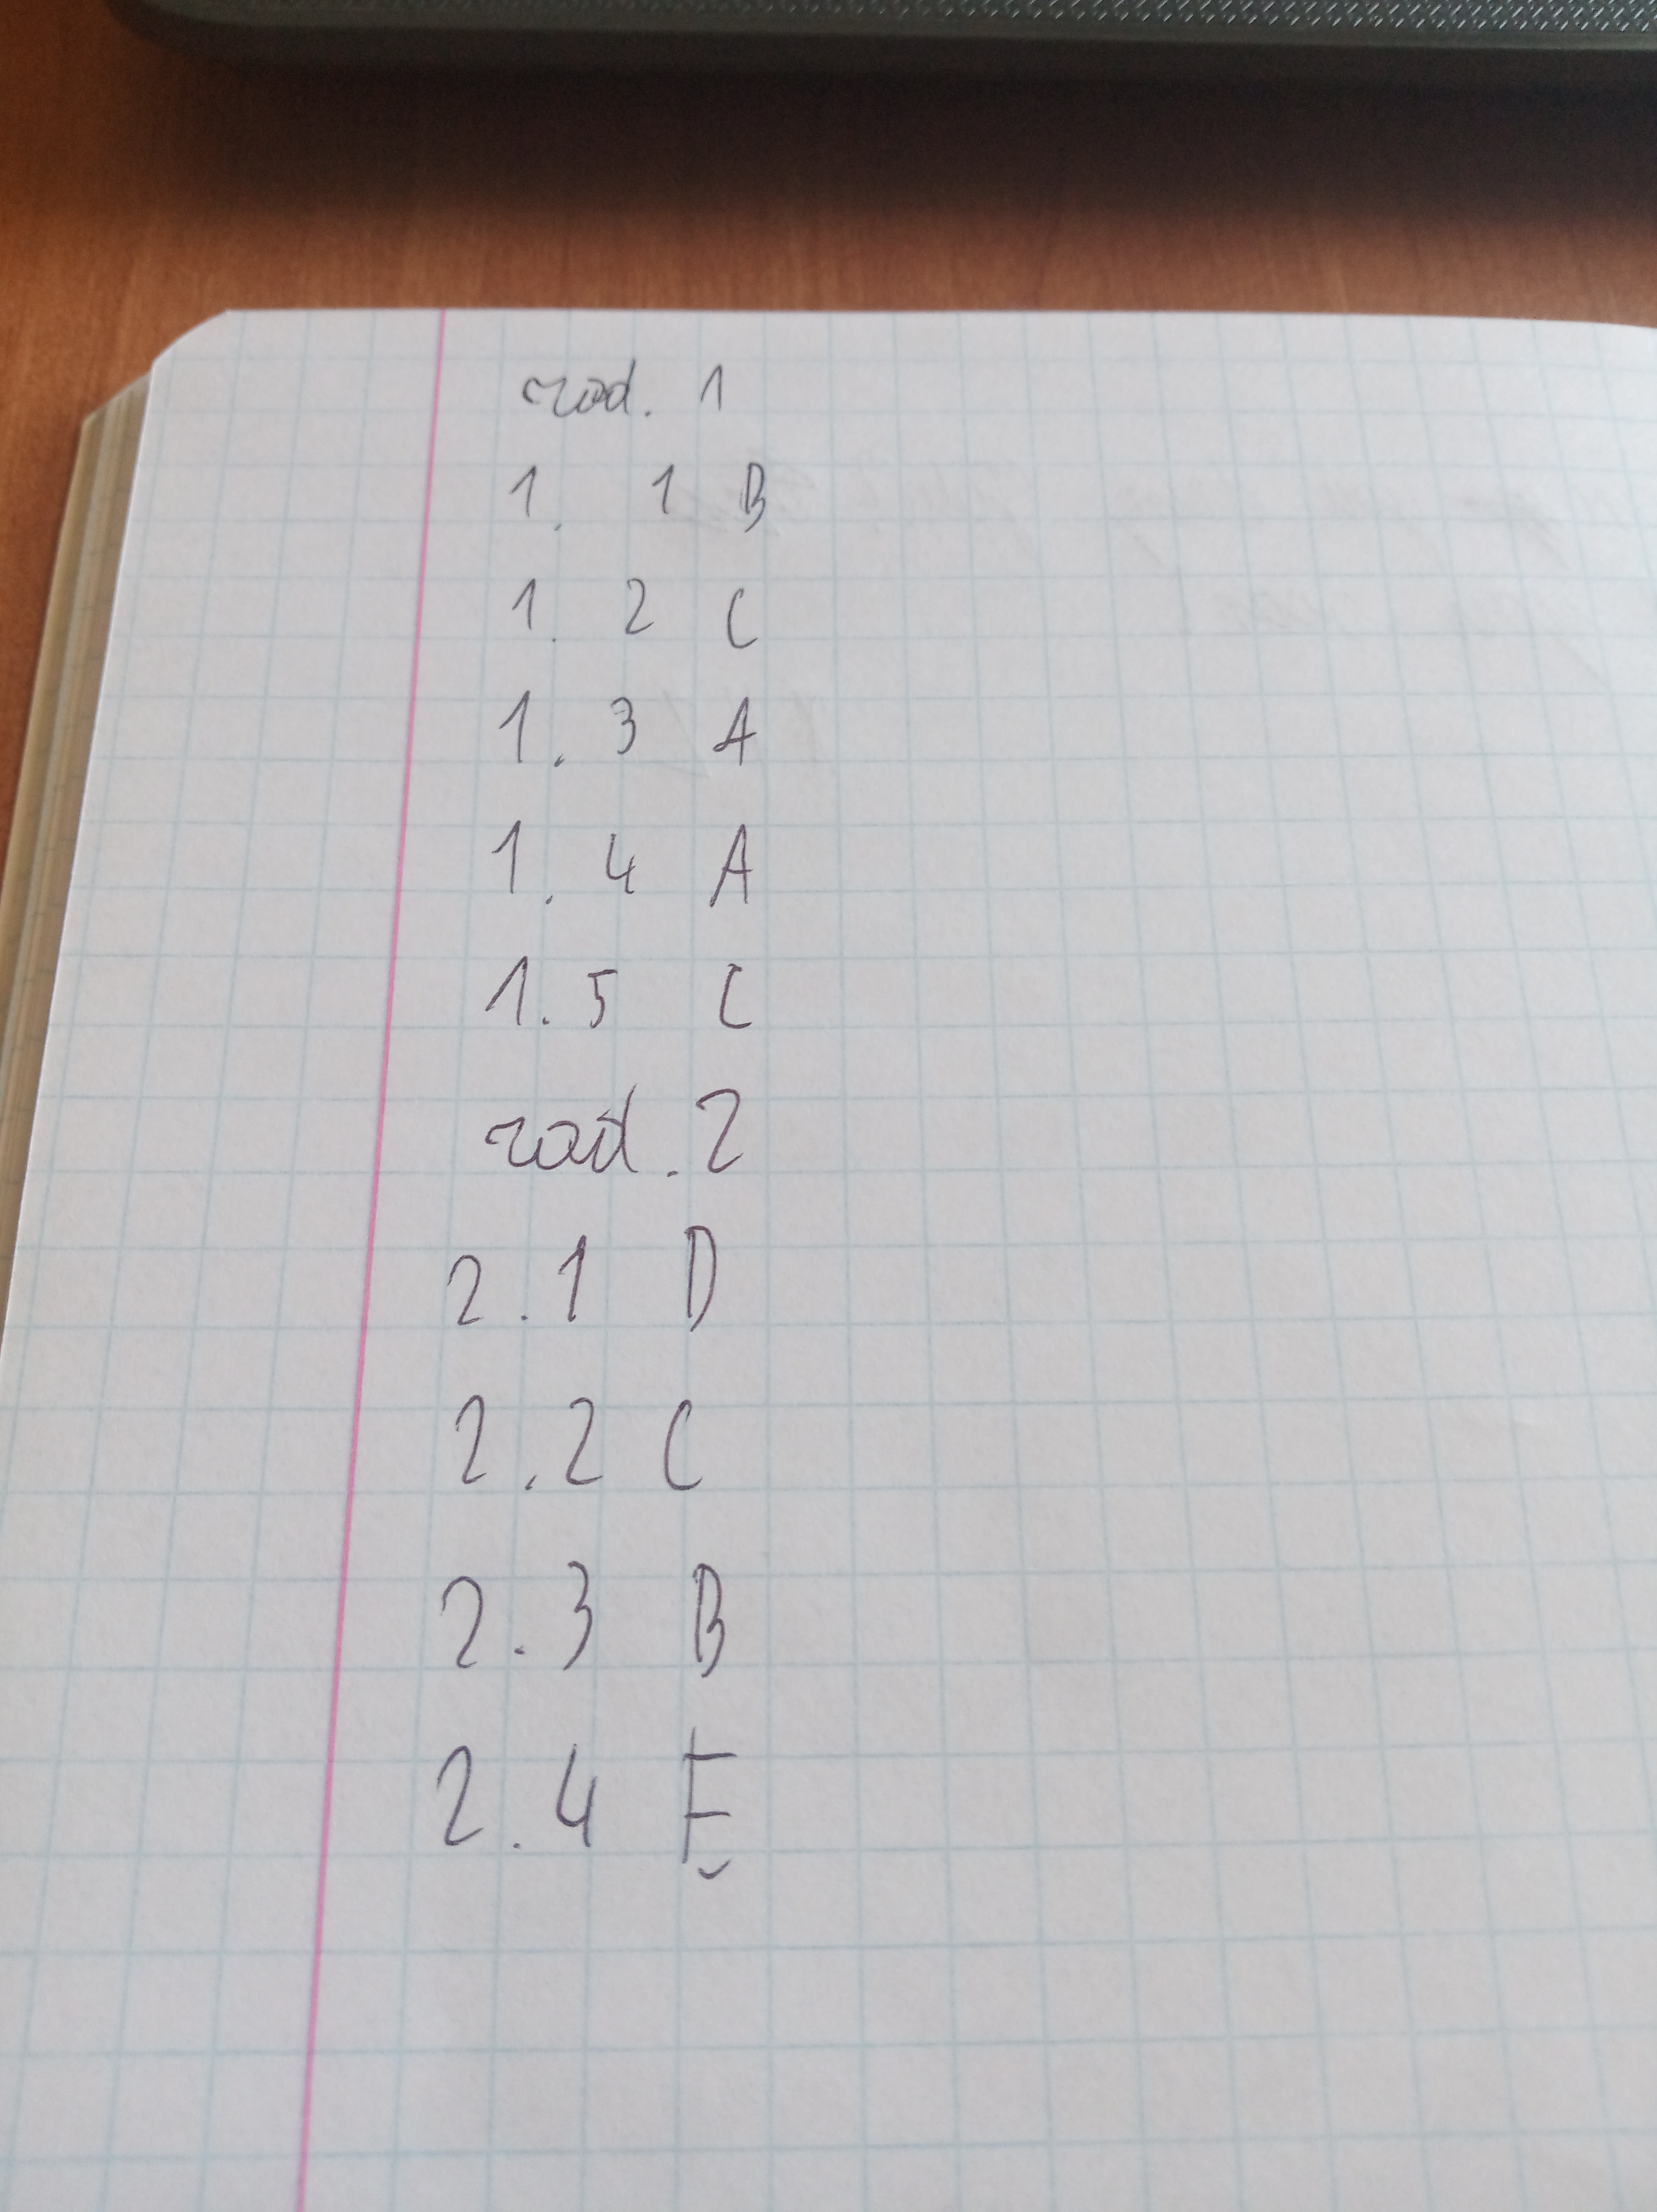 zad. 1
1. 1 B
1. 2 C
1. 3 A
1. 4 A
1. 5 C
zad. 2
2. 1 D
2. 2 C
2. 3 B
2. 4 E